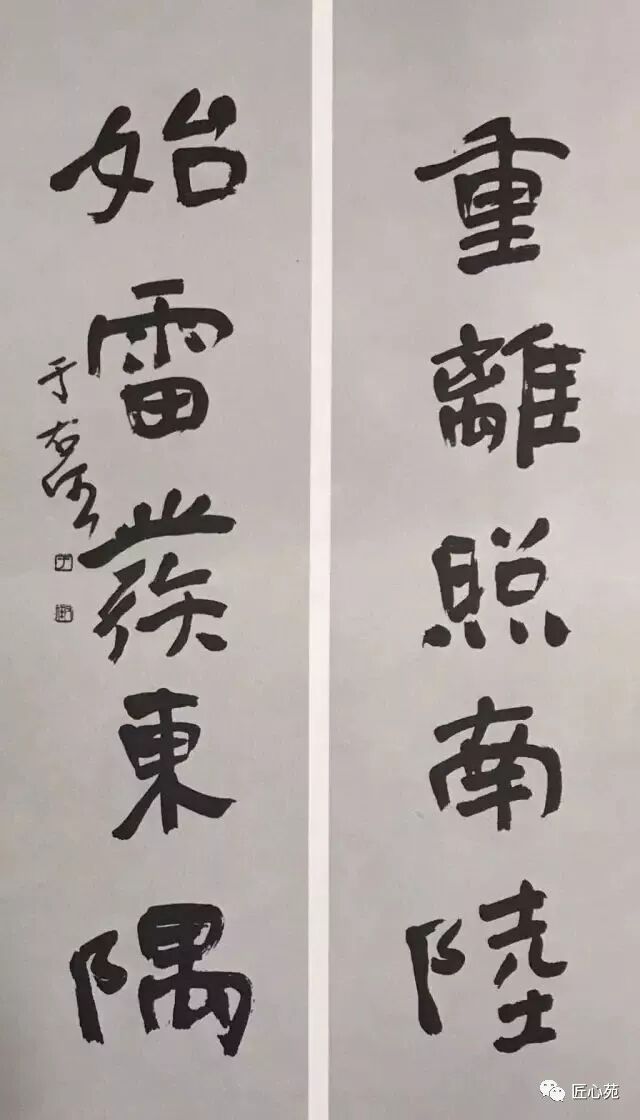 重離照南陸
始雷發東隅
于右任
匠心苑